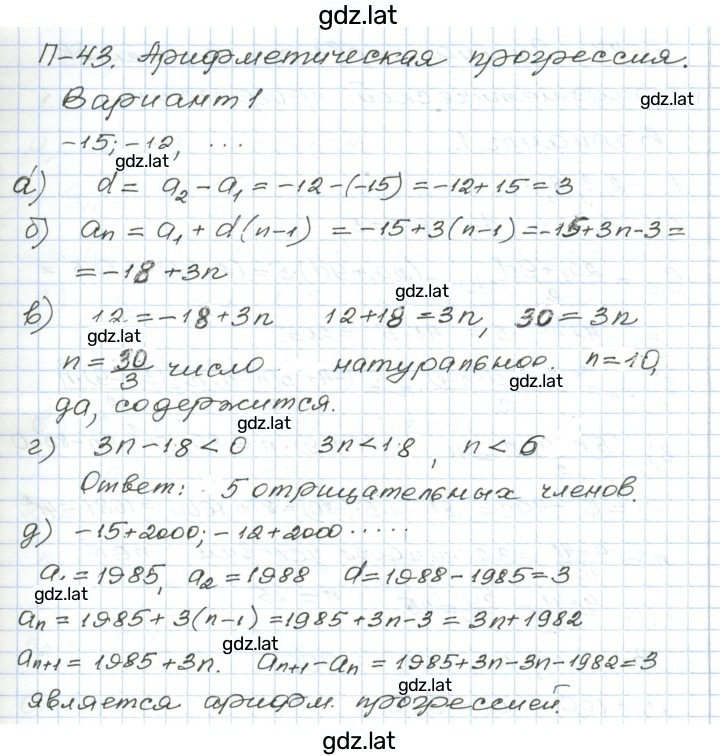 gdz.lat
П-43. Арифметическая прогрессия.
Вариант 1
gdz.lat
-15; -12, ...
gdz.lat
а) d = a₂ - a₁ = -12 - (-15) = -12 + 15 = 3
б) aₙ = a₁ + d(n-1) = -15 + 3(n-1) = -15 + 3n - 3 =
= -18 + 3n
gdz.lat
в) 12 = -18 + 3n 12 + 18 = 3n, 30 = 3n
gdz.lat
n = 30/3 число натуральное. n = 10,
gdz.lat
да, содержится.
gdz.lat
г) 3n - 18 < 0 3n < 18, n < 6
Ответ: 5 отрицательных членов.
д) -15 + 2000; -12 + 2000 .....
a₁ = 1985, a₂ = 1988 d = 1988 - 1985 = 3
gdz.lat
aₙ = 1985 + 3(n-1) = 1985 + 3n - 3 = 3n + 1982
gdz.lat
aₙ₊₁ = 1985 + 3n. aₙ₊₁ - aₙ = 1985 + 3n - 3n - 1982 = 3
gdz.lat
является арифм. прогрессией.
gdz.lat